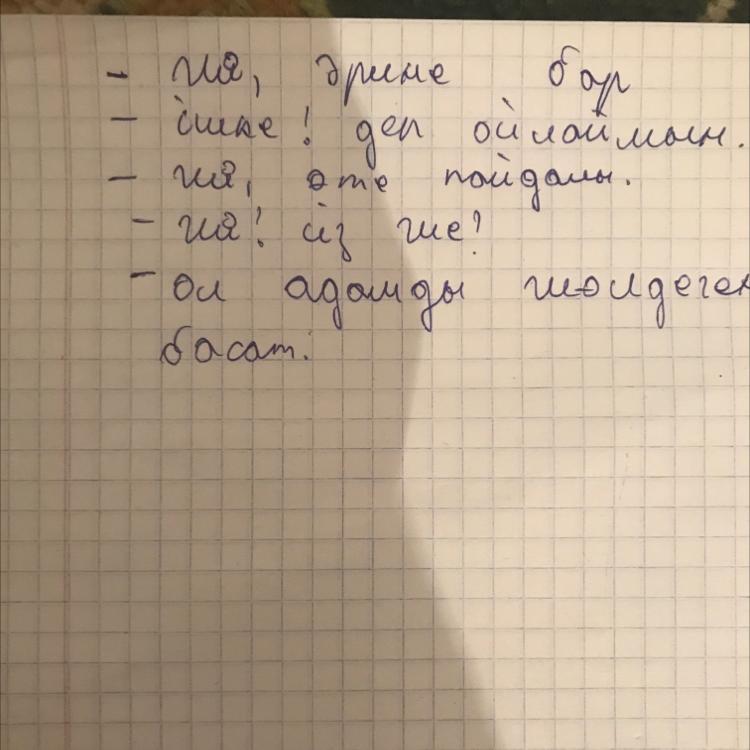 - ия, әрине бар
- ішке! деп ойлаймын.
- ия, өте пайдалы.
- ия! сіз ше?
- ол адамды шөлдеген
басат.